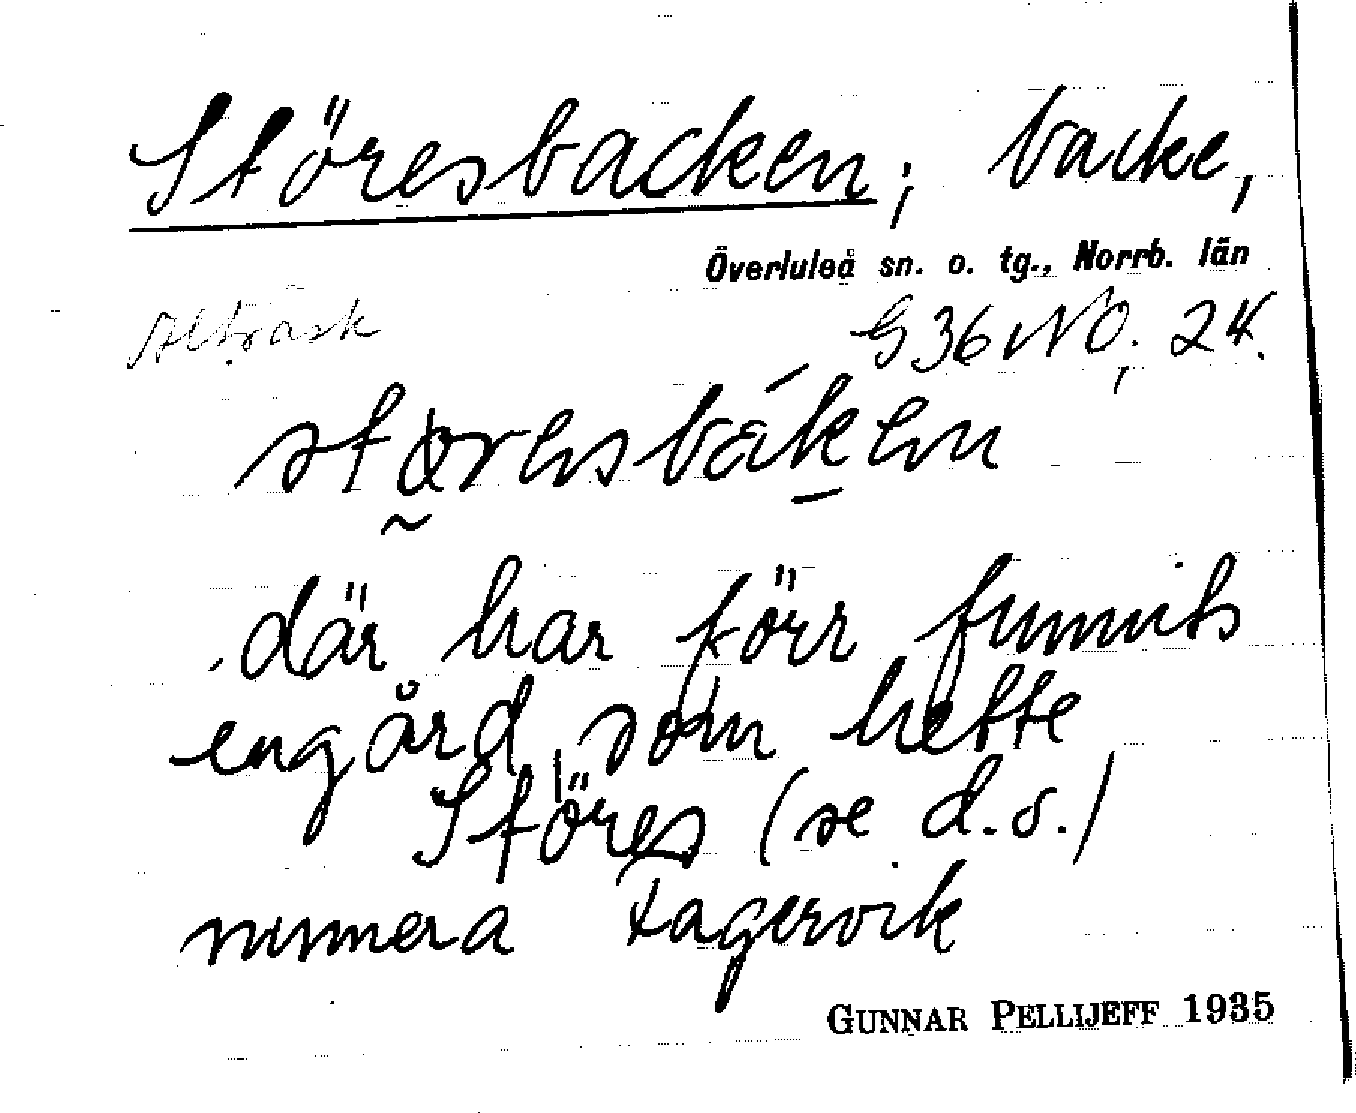 Störesbacken; backe,
Överluleå sn. o. tg., Norrb. län
Alträsk G 36 NO; 24.
støresbáken
där har förr funnits
en gård som hette
Störes (se d.o.)
numera Fagervik
GUNNAR PELLIJEFF 1935